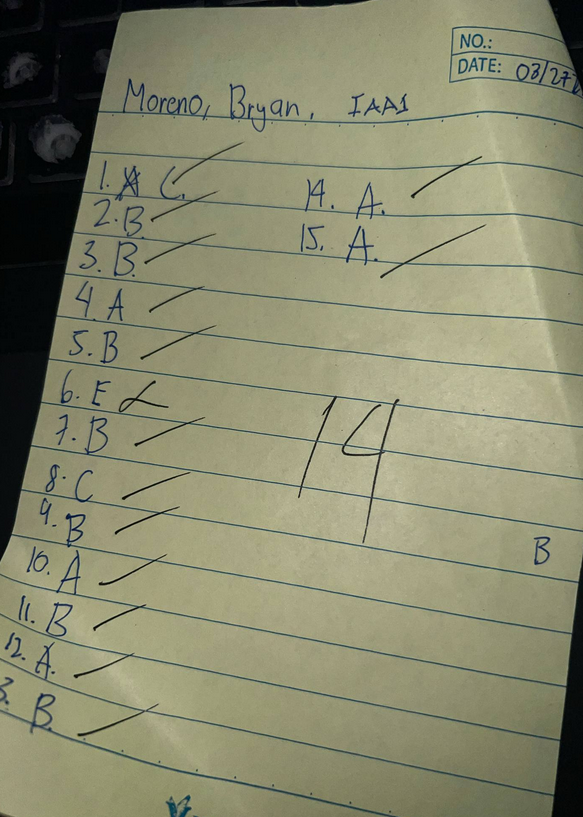 NO.:
DATE: 03/27
Moreno, Bryan. IAA1
1. A C.
2. B.
3. B.
4. A
5. B
6. E
7. B
8. C
9. B
10. A
11. B
12. A.
3. B.
14. A.
15. A.
14
B